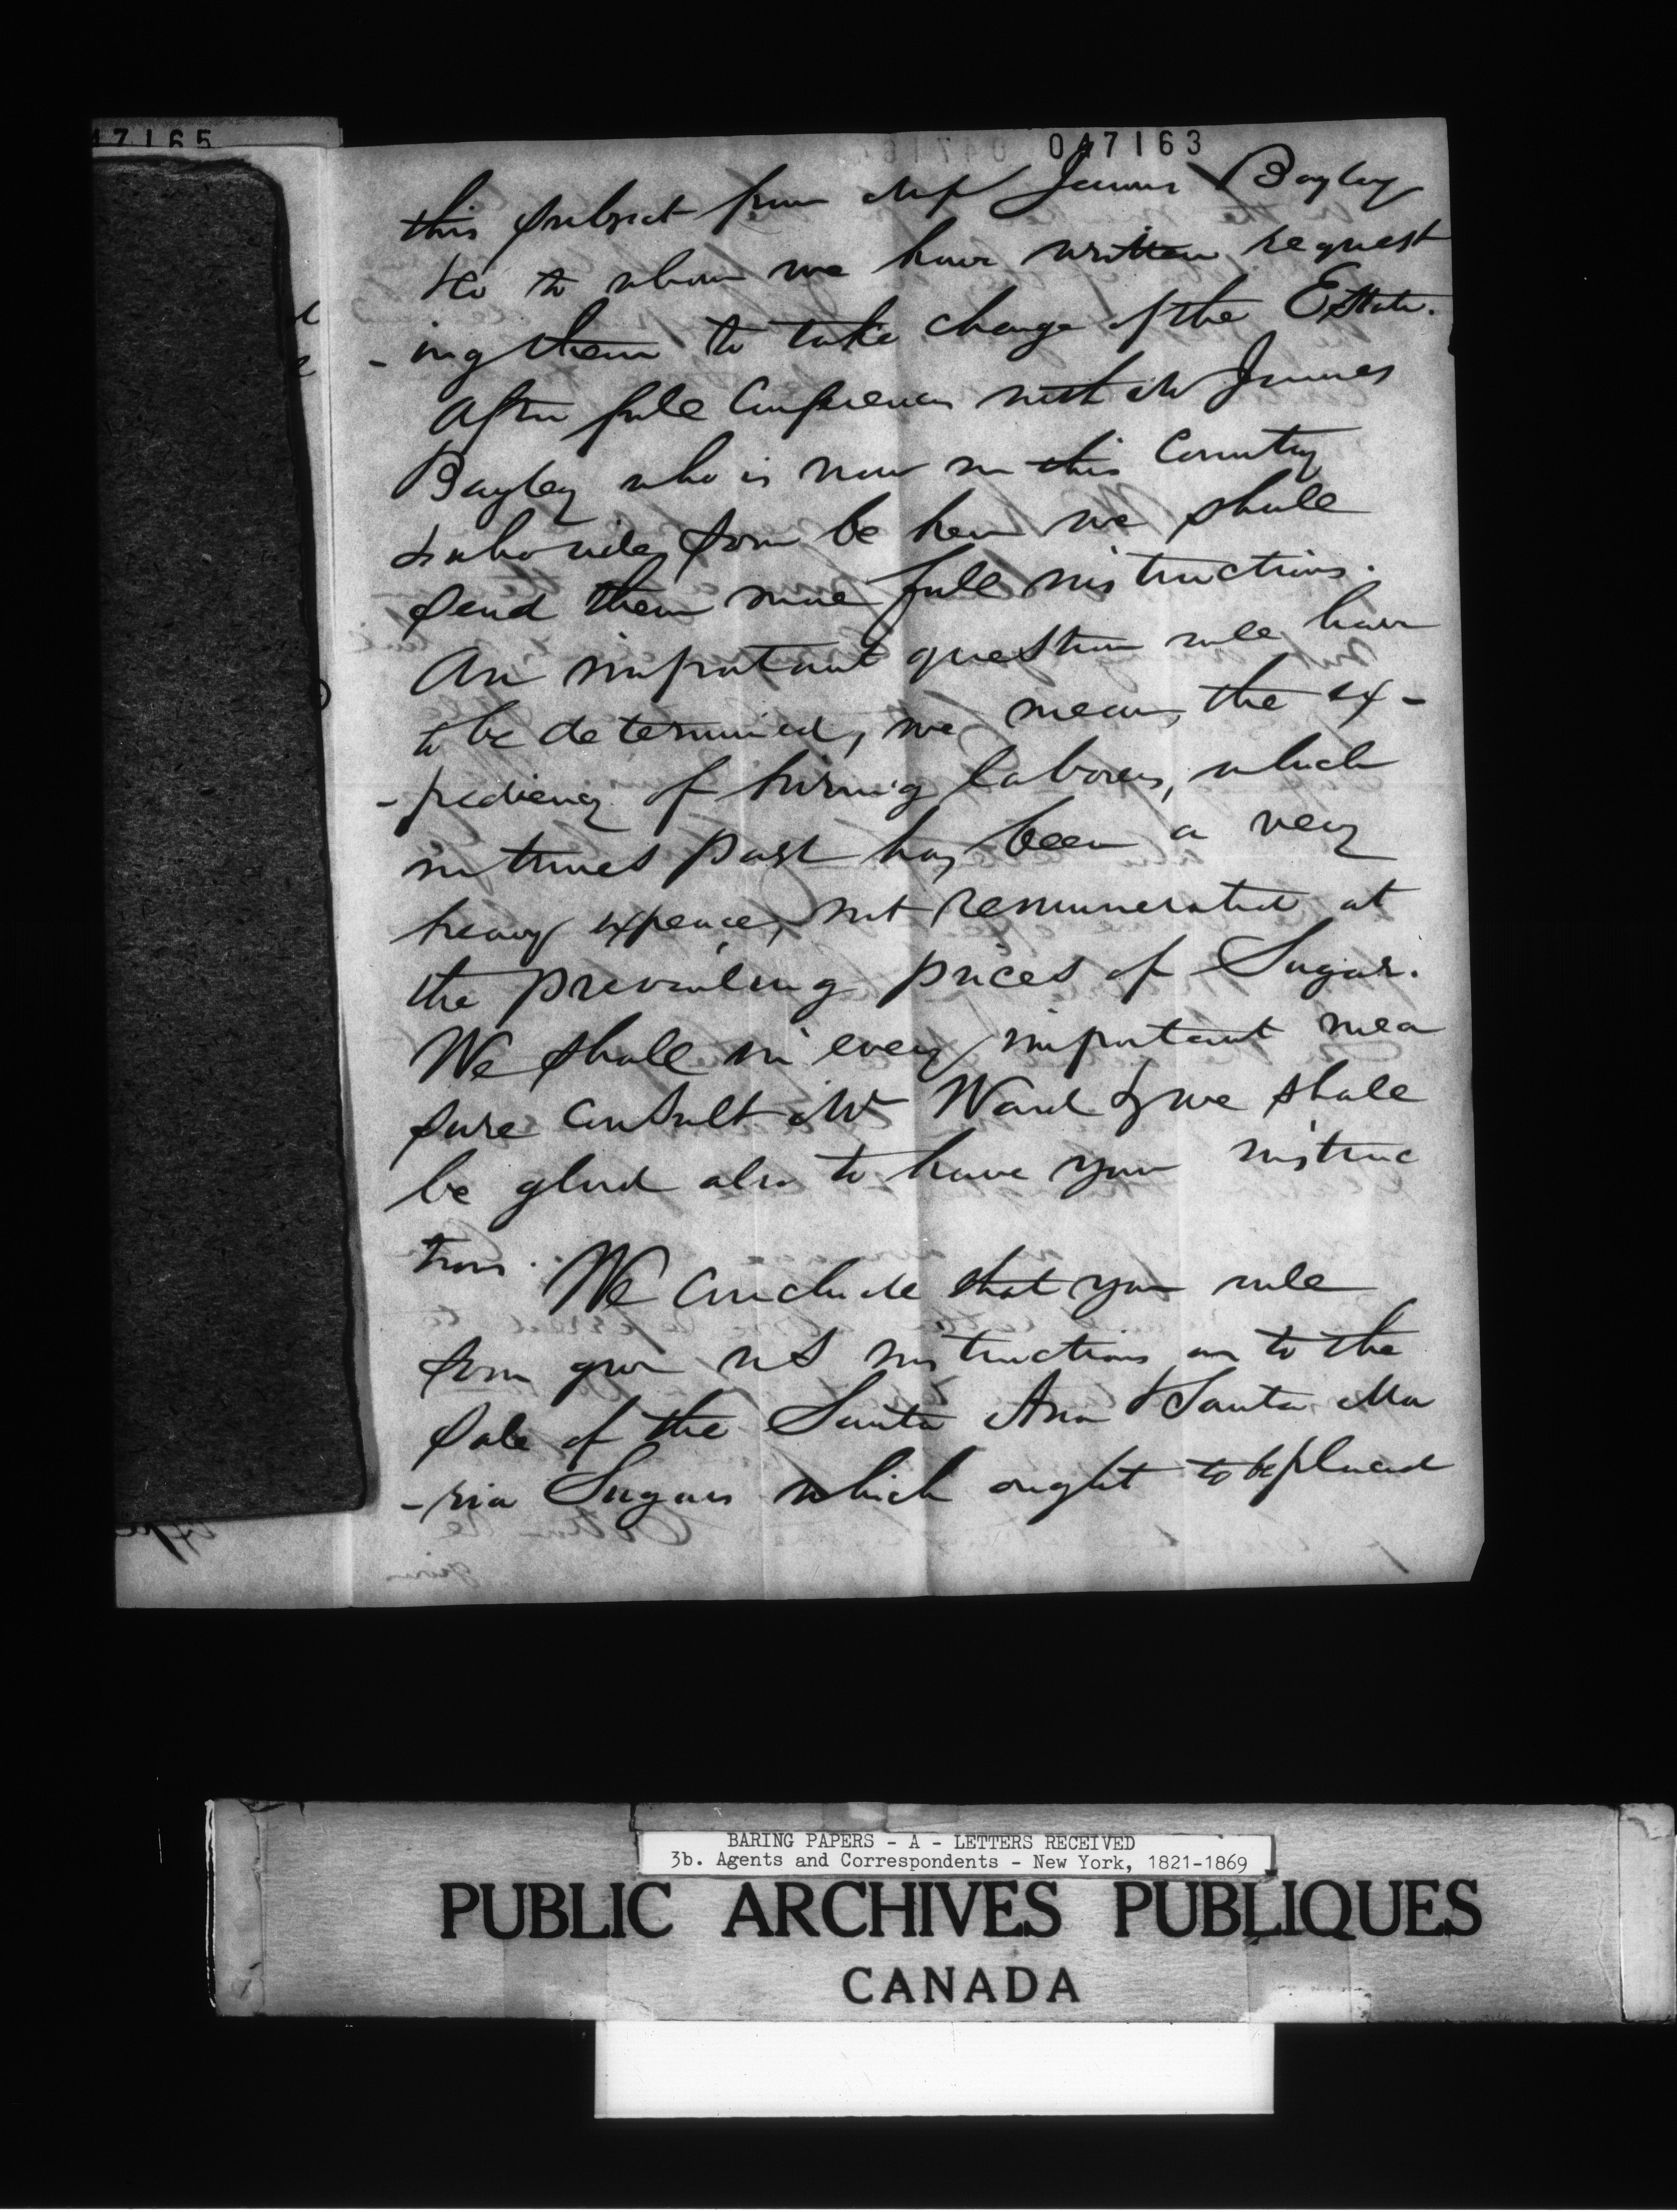 47165
047163
this subject from Mess James Bayley
&Co to whom we have written request
-ing them to take charge of the Estate.
After full Conference with Mr James
Bayley who is now in this Country
& who will soon be here we shall
send them more full instructions.
An important question will have
to be determined, we mean, the ex-
-pediency of hiring laborers, which
in times past has been a very
heavy expence, not remunerated at
the prevailing prices of Sugar.
We shall in every important mea
sure consult Mr Ward & we shall
be glad also to have your instruc
tions.
We conclude that you will
soon give us instructions as to the
Sale of the Santa Ana & Santa Ma
-ria Sugars which ought to be placed
BARING PAPERS - A - LETTERS RECEIVED
3b. Agents and Correspondents - New York, 1821-1869
PUBLIC ARCHIVES PUBLIQUES
CANADA